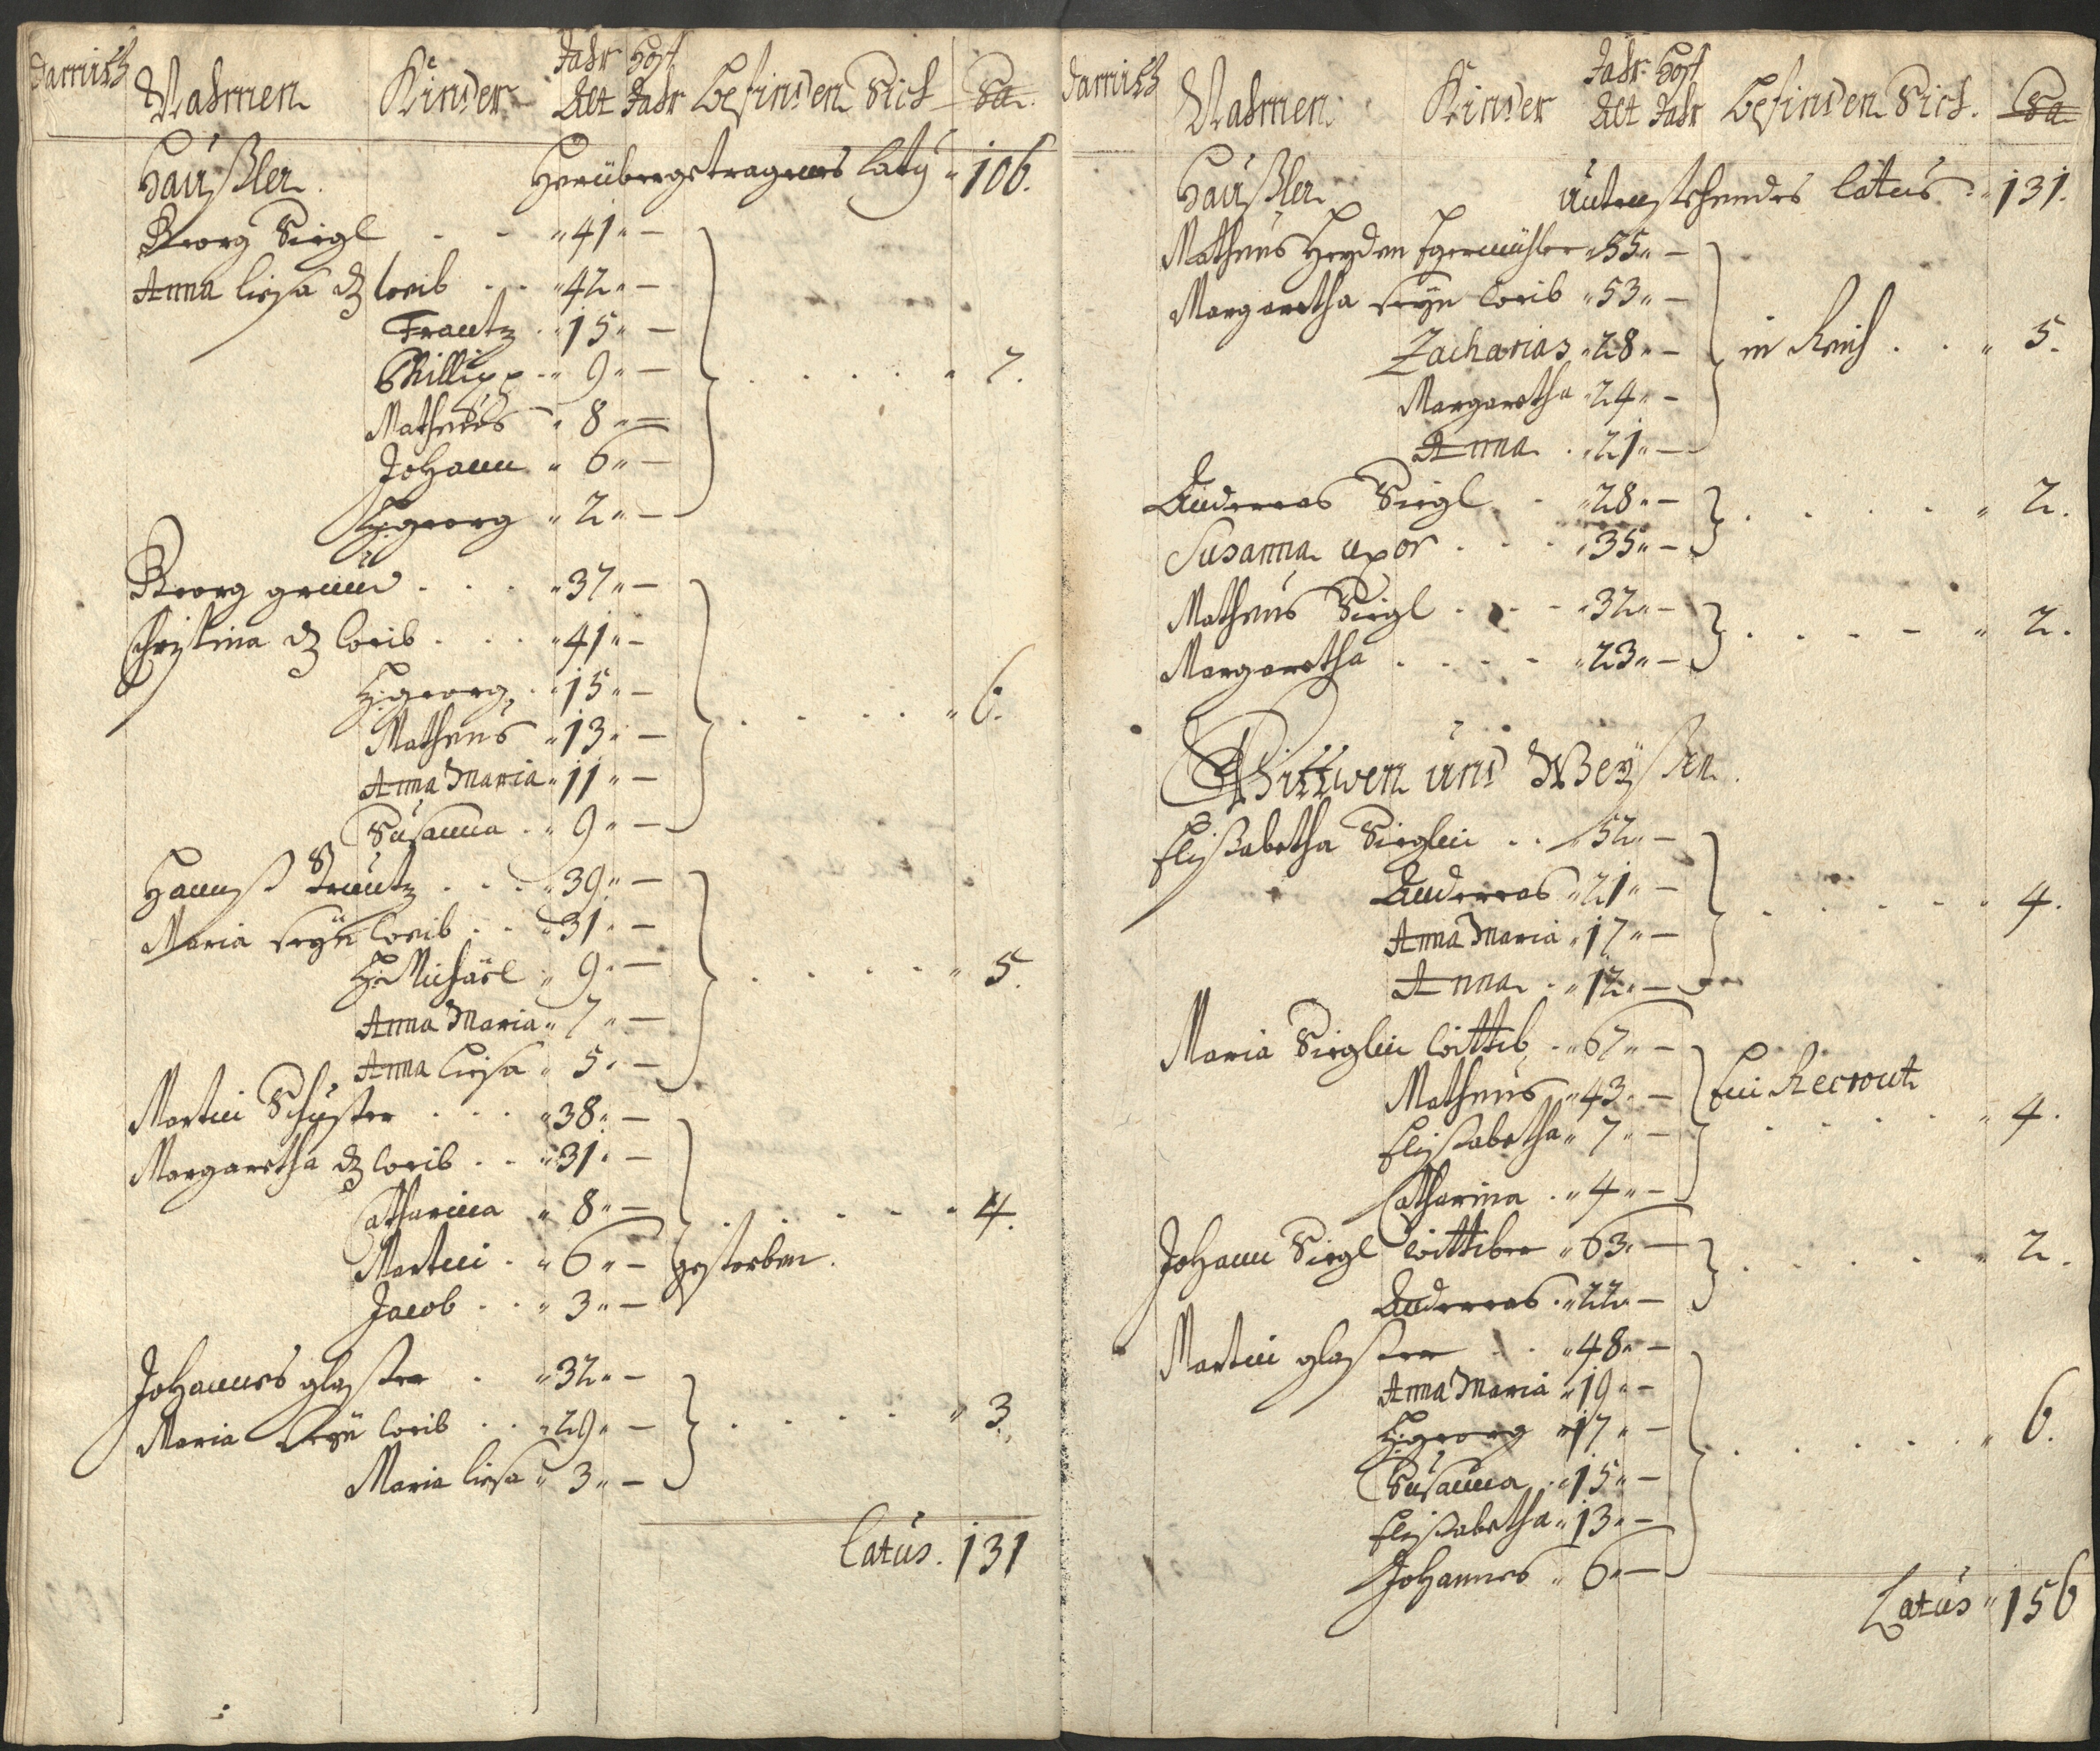 Nahmen Kinder Jahr Alt Hoff Jahr befinden Sich Sa.
Häußler. Herübergetragenes Laty " 106.
Georg Siegl " 41 " —
Anna Liesa d: Weib " 42 " —
Frantz " 15 " —
Phillipp " 9 " — 7.
Matheus " 8 " —
Johann " 6 " —
H: georg " 2 " —
Georg " 37 " —
Christina d: Weib " 41 " —
H: georg " 15 " —
Matheus " 13 " — 6.
Anna Maria " 11 " —
Susanna " 9 " —
Hannß " 39 " —
Maria seyn Weib " 31 " —
H: Michäel " 9 " — 5.
Anna Maria " 7 " —
Anna Liesa " 5 " —
Martin Schuster " 38 " —
Margaretha d: Weib " 31 " —
Catharina " 8 " — 4.
Martin " 6 " — gestorben.
Jacob " 3 " —
Johannes glaßer " 32 " —
Maria seyn Weib " 29 " — 3.
Maria Liesa " 3 " —
Latus. 131
Nahmen Kinder Jahr Alt Hoff Jahr befinden Sich. Sa
Häußler. Latus " 131.
Matheus Heyden " 55 " —
Margaretha seyn Weib " 53 " —
Zacharias " 28 " — in Reich " 5.
Margaretha " 24 " —
Anna " 21 " —
Andereas Siegl " 28 " — 2.
Susanna uxor " 35 " —
Matheus Siegl " 32 " — 2.
Margaretha " 23 " —
Wittwen und Weysen.
Elisabetha Sieglin " 52 " —
Andereas " 21 " — 4.
Anna Maria " 17 " —
Anna " 12 " —
Maria Sieglin Wittib " 67 " —
Matheus " 43 " — Ein Recrout
Elisabetha " 7 " — 4.
Catharina " 4 " —
Johann Siegl Wittiber " 63 " — 2.
Andereas " 22 " —
Martin glaßer " 48 " —
Anna Maria " 19 " —
H: georg " 17 " — 6.
Susanna " 15 " —
Elisabetha " 13 " —
Johannes " 6 " —
Latus " 156